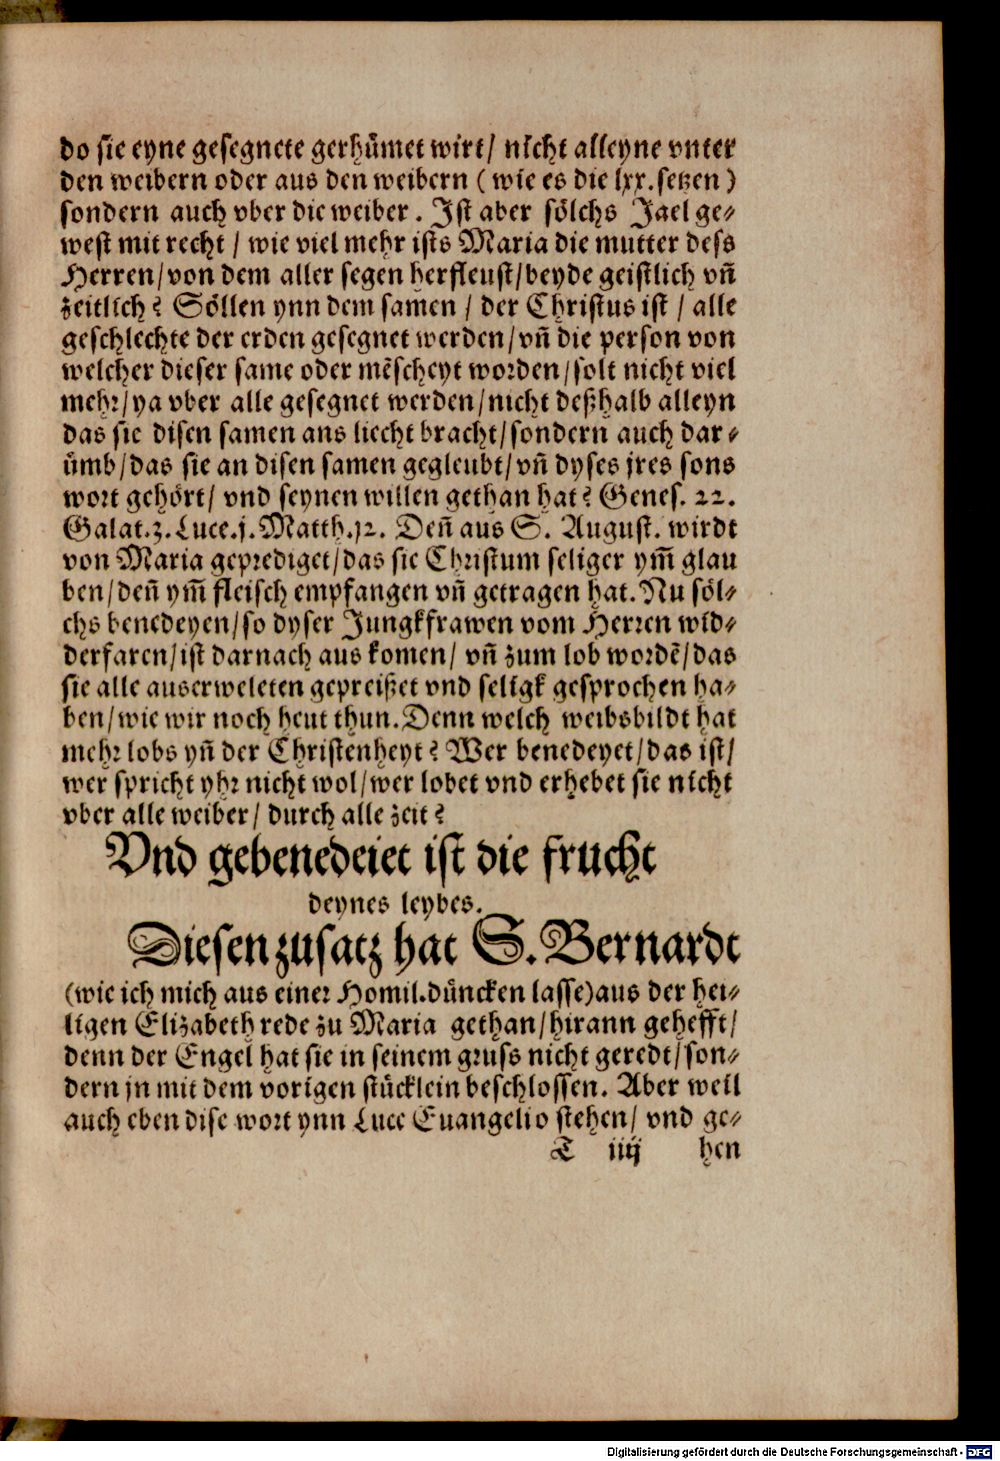 do sie eyne gesegnete gerhümet wirt/ nicht alleyne vnter
den weibern oder aus den weibern (wie es die lxx. setzen)
sondern auch vber die weiber. Ist aber sölchs Jael ge⸗
west mit recht/ wie viel mehr ists Maria die mutter dess
Herren/von dem aller segen herfleust/beyde geistlich vñ
zeitlich? Söllen ynn dem samen/ der Christus ist/ alle
geschlechte der erden gesegnet werden/vñ die person von
welcher dieser same oder mẽscheyt worden/solt nicht viel
mehr/ya vber alle gesegnet werden/nicht deßhalb alleyn
das sie disen samen ans liecht bracht/sondern auch dar⸗
ümb/das sie an disen samen gegleubt/vñ dyses jres sons
wort gehört/ vnd seynen willen gethan hat? Genes. 22.
Galat.3. Luce.j. Matth.j2. Deñ aus S. August. wirdt
von Maria geprediget/das sie Christum seliger ym̃ glau
ben/deñ ym̃ fleisch empfangen vñ getragen hat. Nu söl⸗
chs benedeyen/so dyser Jungkfrawen vom Herren wid⸗
derfaren/ist darnach aus komen/ vñ zum lob wordẽ/das
sie alle auserweleten gepreißet vnd seligk gesprochen ha⸗
ben/wie wir noch heut thun. Denn welch weibsbildt hat
mehr lobs yñ der Christenheyt? Wer benedeyet/das ist/
wer spricht yhr nicht wol/wer lobet vnd erhebet sie nicht
vber alle weiber/ durch alle zeit?
Vnd gebenedeiet ist die frucht
deynes leybes.
Diesen zusatz hat S. Bernardt
(wie ich mich aus einer Homil.düncken lasse)aus der hei⸗
ligen Elizabeth rede zu Maria gethan/hirann gehefft/
denn der Engel hat sie in seinem gruss nicht geredt/son⸗
dern jn mit dem vorigen stücklein beschlossen. Aber weil
auch eben dise wort ynn Luce Euangelio stehen/ vnd ge⸗
T iiij hen
Digitalisierung gefördert durch die Deutsche Forschungsgemeinschaft - DFG